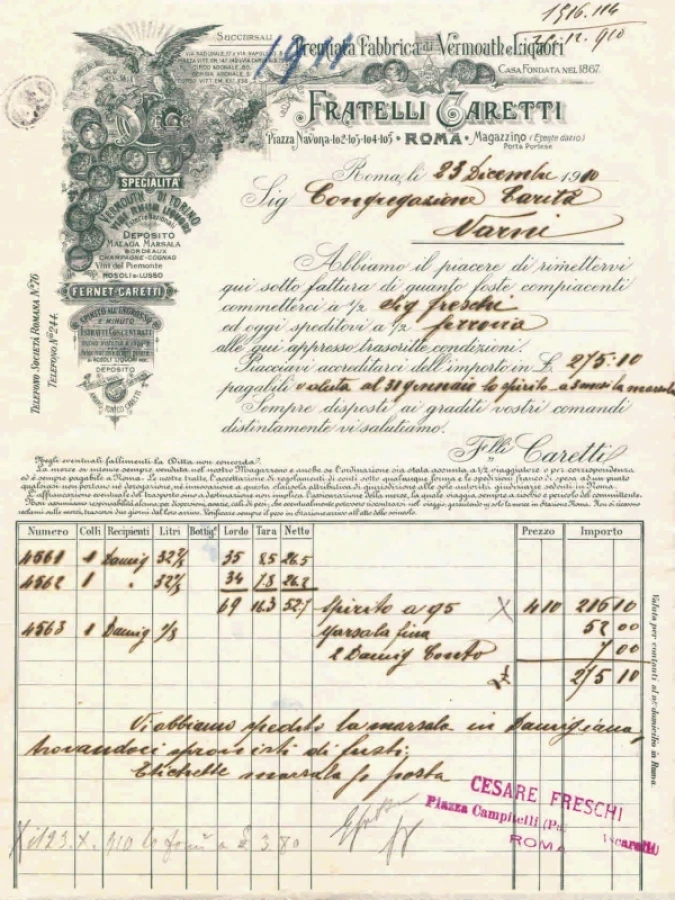 1516.114
28.12.910
1911
SUCCURSALI
Premiata Fabbrica di Vermouth e Liquori
CASA FONDATA NEL 1867
FRATELLI CARETTI
Piazza Navona 102-103-104-105 • ROMA • Magazzino (Esente dazio)
Porta Portese
SPECIALITÀ
VERMOUTH DI TORINO
DEPOSITO
MALAGA MARSALA
BORDEAUX
CHAMPAGNE-COGNAC
Vini del Piemonte
ROSOLI E LUSSO
FERNET-CARETTI
SPIRITO ALL'INGROSSO
E MINUTO
ESTRATTI CONCENTRATI
DEPOSITO
TELEFONO SOCIETÀ ROMANA N.° 76
TELEFONO N.° 244
Roma, li 23 Dicembre 1910
Sig Congregazione Carità
Narni
Abbiamo il piacere di rimettervi
qui sotto fattura di quanto foste compiacenti
commetterci a 1/2 Sig freschi
ed oggi speditovi a 1/2 ferrovia
alle qui appresso trascritte condizioni.
Piacciavi accreditarci dell'importo in £ 275:10
pagabili valuta al 31 gennaio lo spirito a 3 mesi la marsala
Sempre disposti ai graditi vostri comandi
distintamente vi salutiamo.
Flli Caretti
Negli eventuali fallimenti la Ditta non concorda.
La merce si intese sempre venduta nel nostro Magazzeno e anche se l'ordinazione sia stata assunta a 1/2 viaggiatore o per corrispondenza
ed è sempre pagabile a Roma. Le nostre tratte, l'accettazione di regolamenti di conti sotto qualunque forma e le spedizioni franco di spesa ad un punto
qualsiasi non portano nè derogazione, nè innovazione a questa clausola attributiva di giurisdizione alle sole autorità giudiziarie sedenti in Roma.
L'affrancazione eventuale del trasporto sino a destinazione non implica l'assicurazione della merce, la quale viaggia sempre a rischio e pericolo del committente.
Numero Colli Recipienti Litri Bottig.e Lorde Tara Netto Prezzo Importo
4561 1 Damig 32 35 8.5 26.5
4562 1 " 32 34 7.8 26.2
69 16.3 52.7 Spirito a 95 X 410 216 10
4563 1 Damig Marsala fina 52 00
2 Damig Conto 7 00
275 10
Vi abbiamo spedito la marsala in Damigiana,
trovandoci sprovvisti di fusti.
Etichette marsala p posta
Valuta per contanti al n/ domicilio in Roma
CESARE FRESCHI
Piazza Campitelli
ROMA